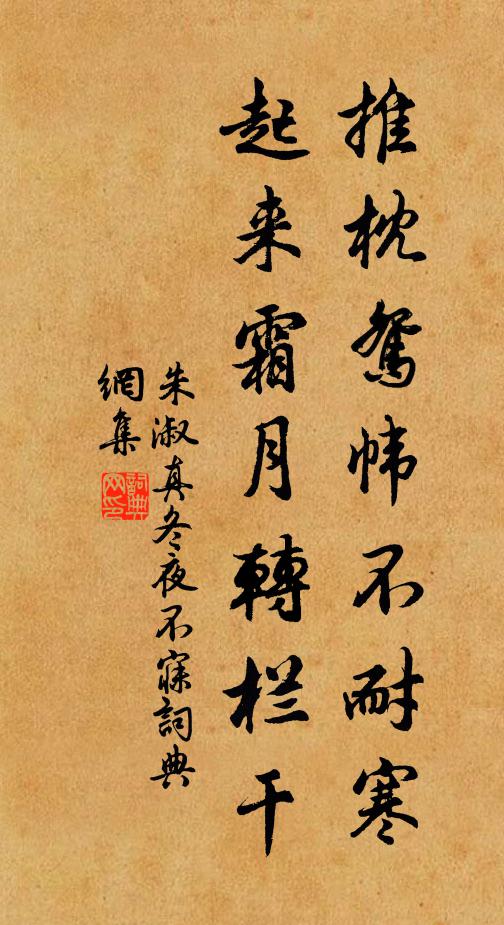 推枕鴛帏不耐寒
起来霜月轉栏干
朱淑真冬夜不寐詞典
網集
詞典网印